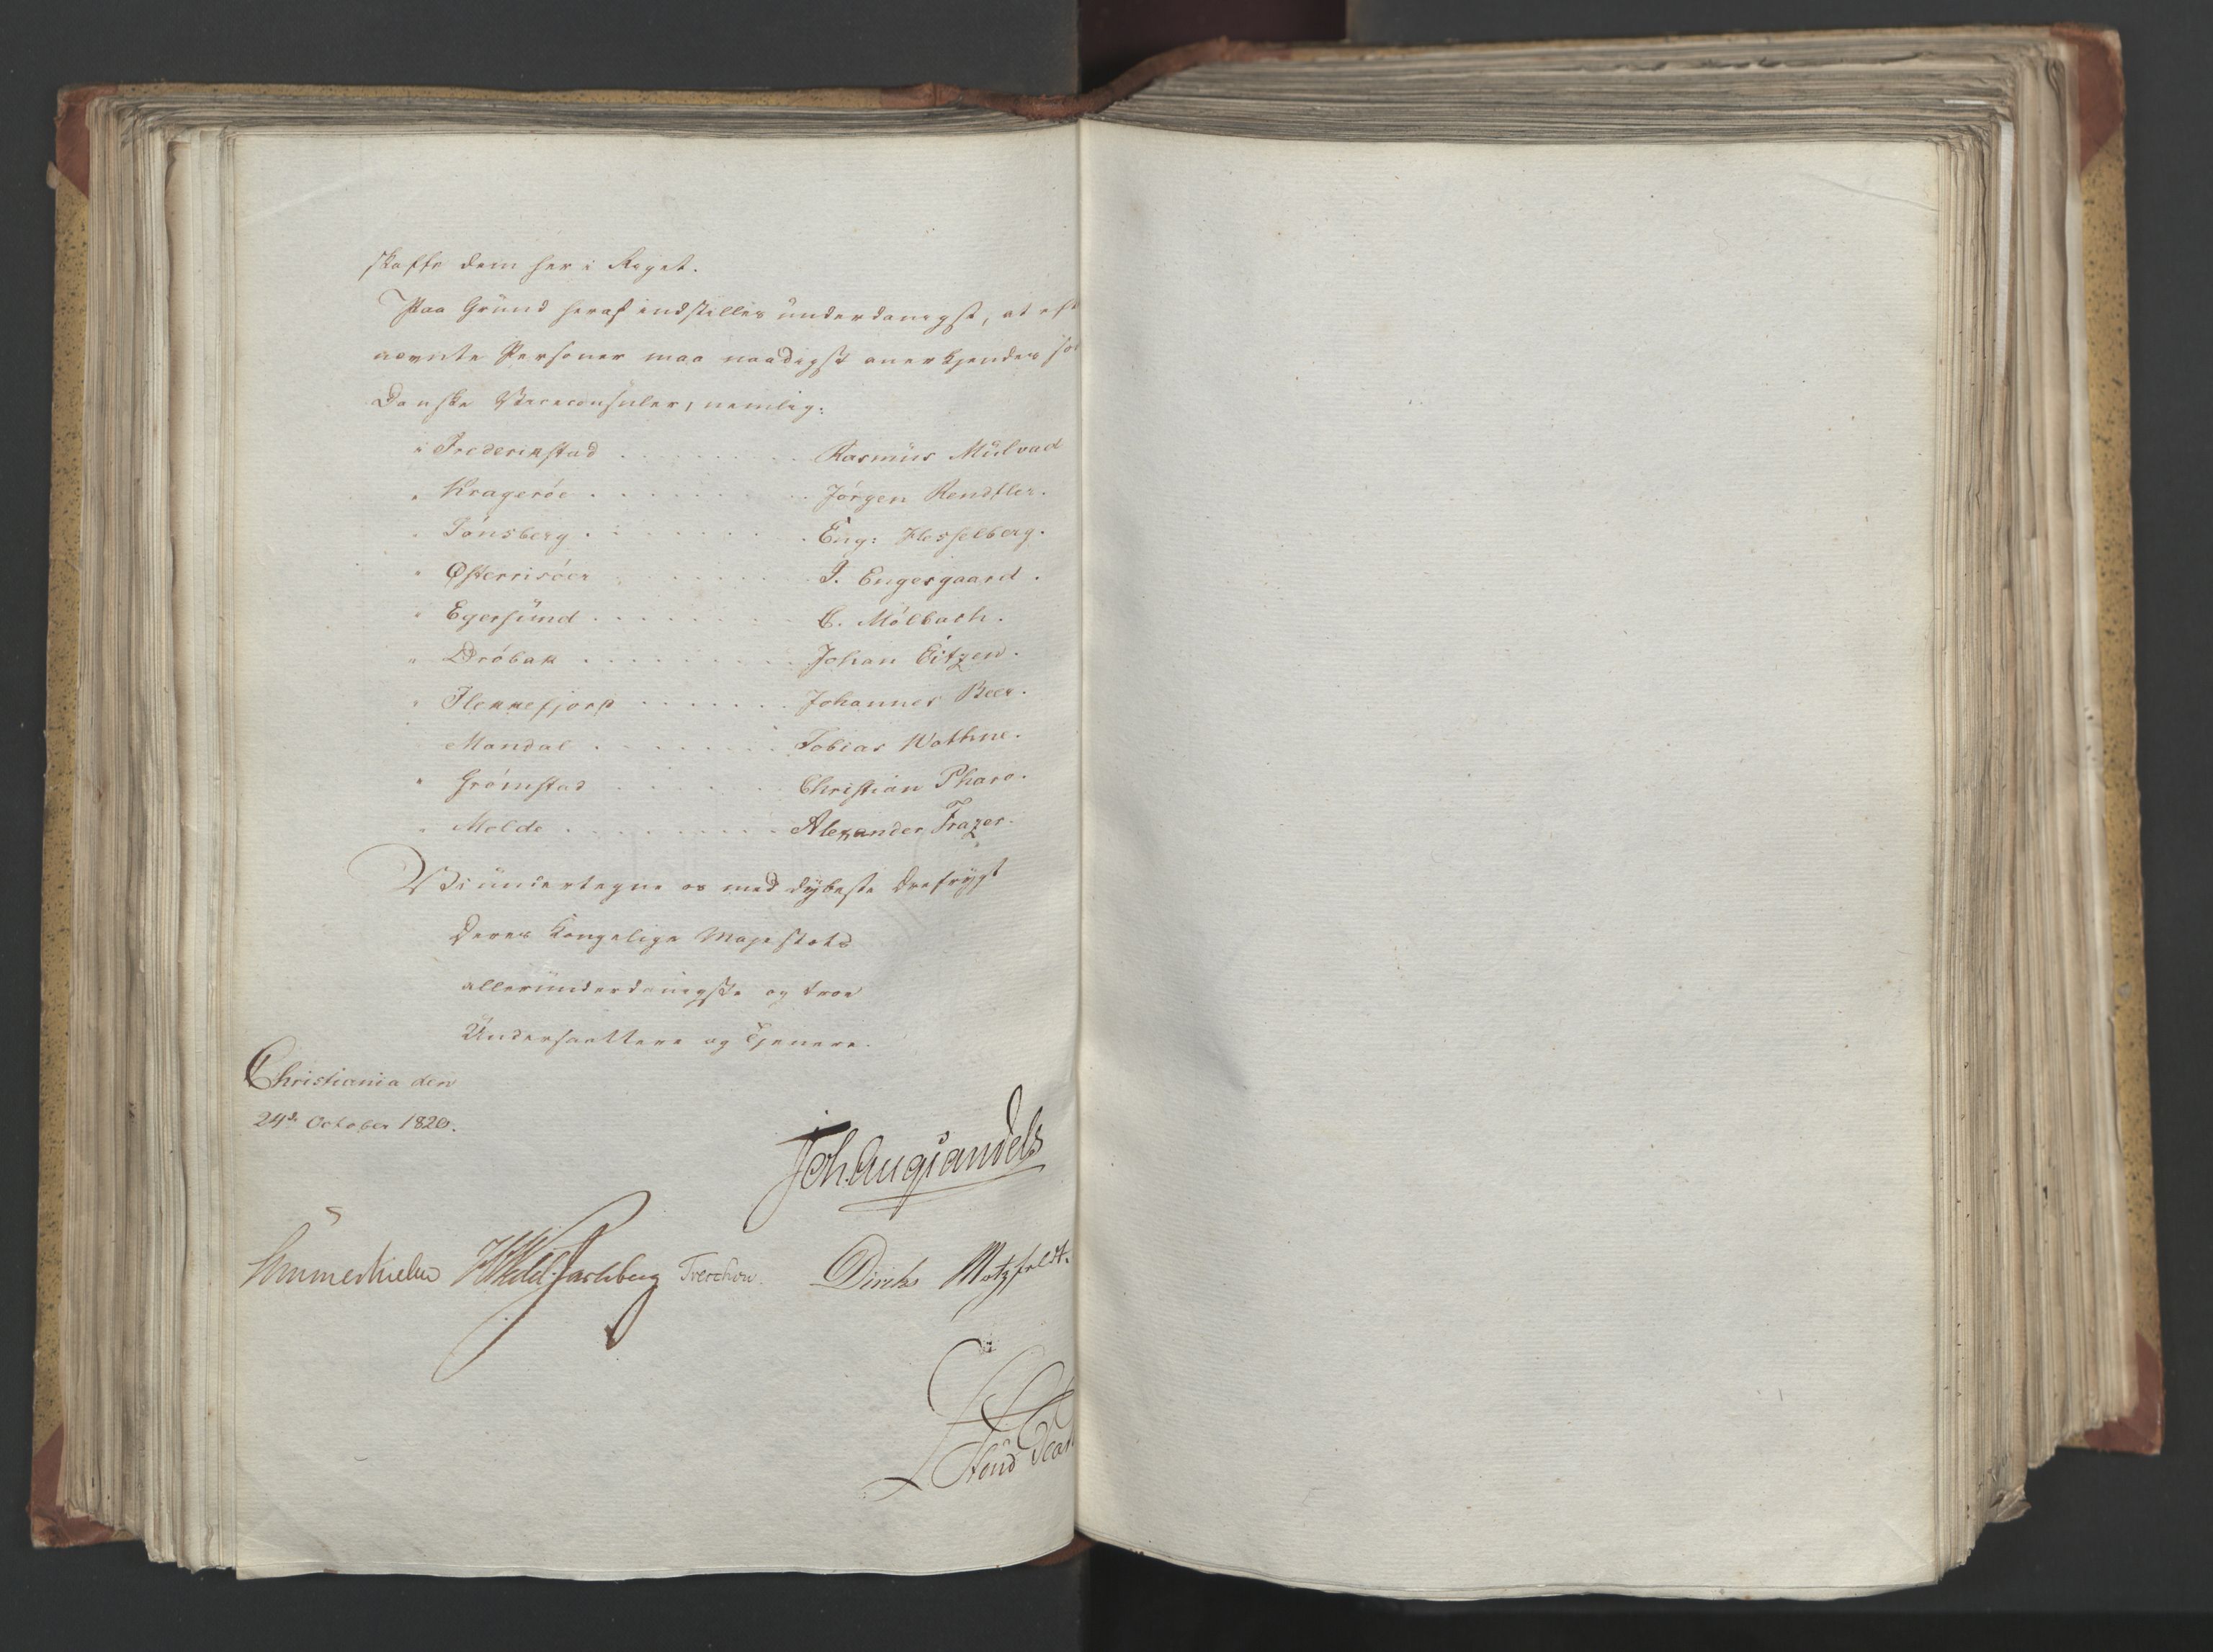 skaffe dem her i Riget.
Paa Grund heraf indstilles underdanigst, at eft
nævnte Personer maa naadigst anerkjendes so
Danske Viceconsuler, nemlig:
i Frederikstad . . . . . . . . Rasmus Mulvad
" Kragerøe . . . . . . . . Jørgen Rendtler.
" Tønsberg . . . . . . . . Eng: Hesselberg.
" Østerrisøer . . . . . . . . J. Engesgaard.
" Egersund . . . . . . . . C. Mølbach.
" Drøbak . . . . . . . . Johan Eitzen.
" Flekkefjord . . . . . . . . Johannes Beer.
Mandal . . . . . . . . Tobias Wathne.
" Grømstad . . . . . . . . Christian Pharo.
" Molde . . . . . . . . Alexander Frazer.
Vi undertegne os med dybeste Ærefrygt
Deres Kongelige Majestæts
allerunderdanigste og troe
Undersaattere og Tjenere.
Christiania den
24de October 1820.
Joh. Aug. Sandels
Sommerhielm HWedel Jarlsberg Treschow. Diriks Motzfeldt.